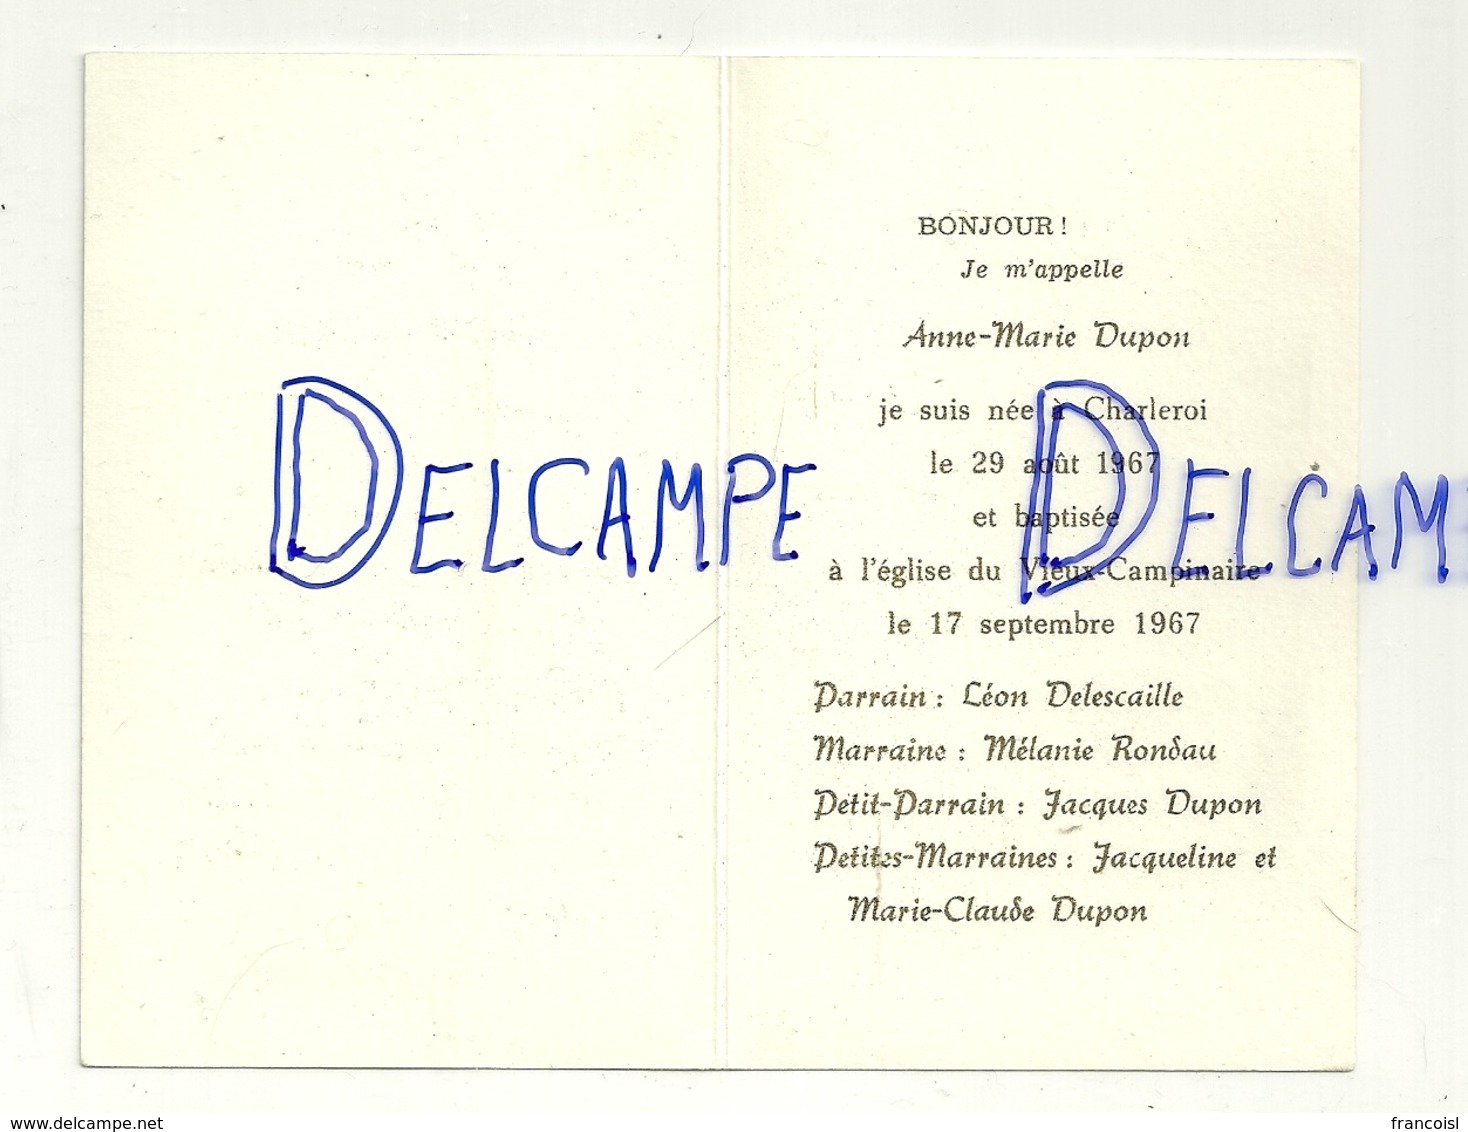 BONJOUR !
Je m'appelle
Anne-Marie Dupon
je suis née à Charleroi
le 29 août 1967
et baptisée
à l'église du Vieux-Campinaire
le 17 septembre 1967
Parrain : Léon Delescaille
Marraine : Mélanie Rondau
Petit-Parrain : Jacques Dupon
Petites-Marraines : Jacqueline et
Marie-Claude Dupon
DELCAMPE DELCAM
delcampe.net
francoisl